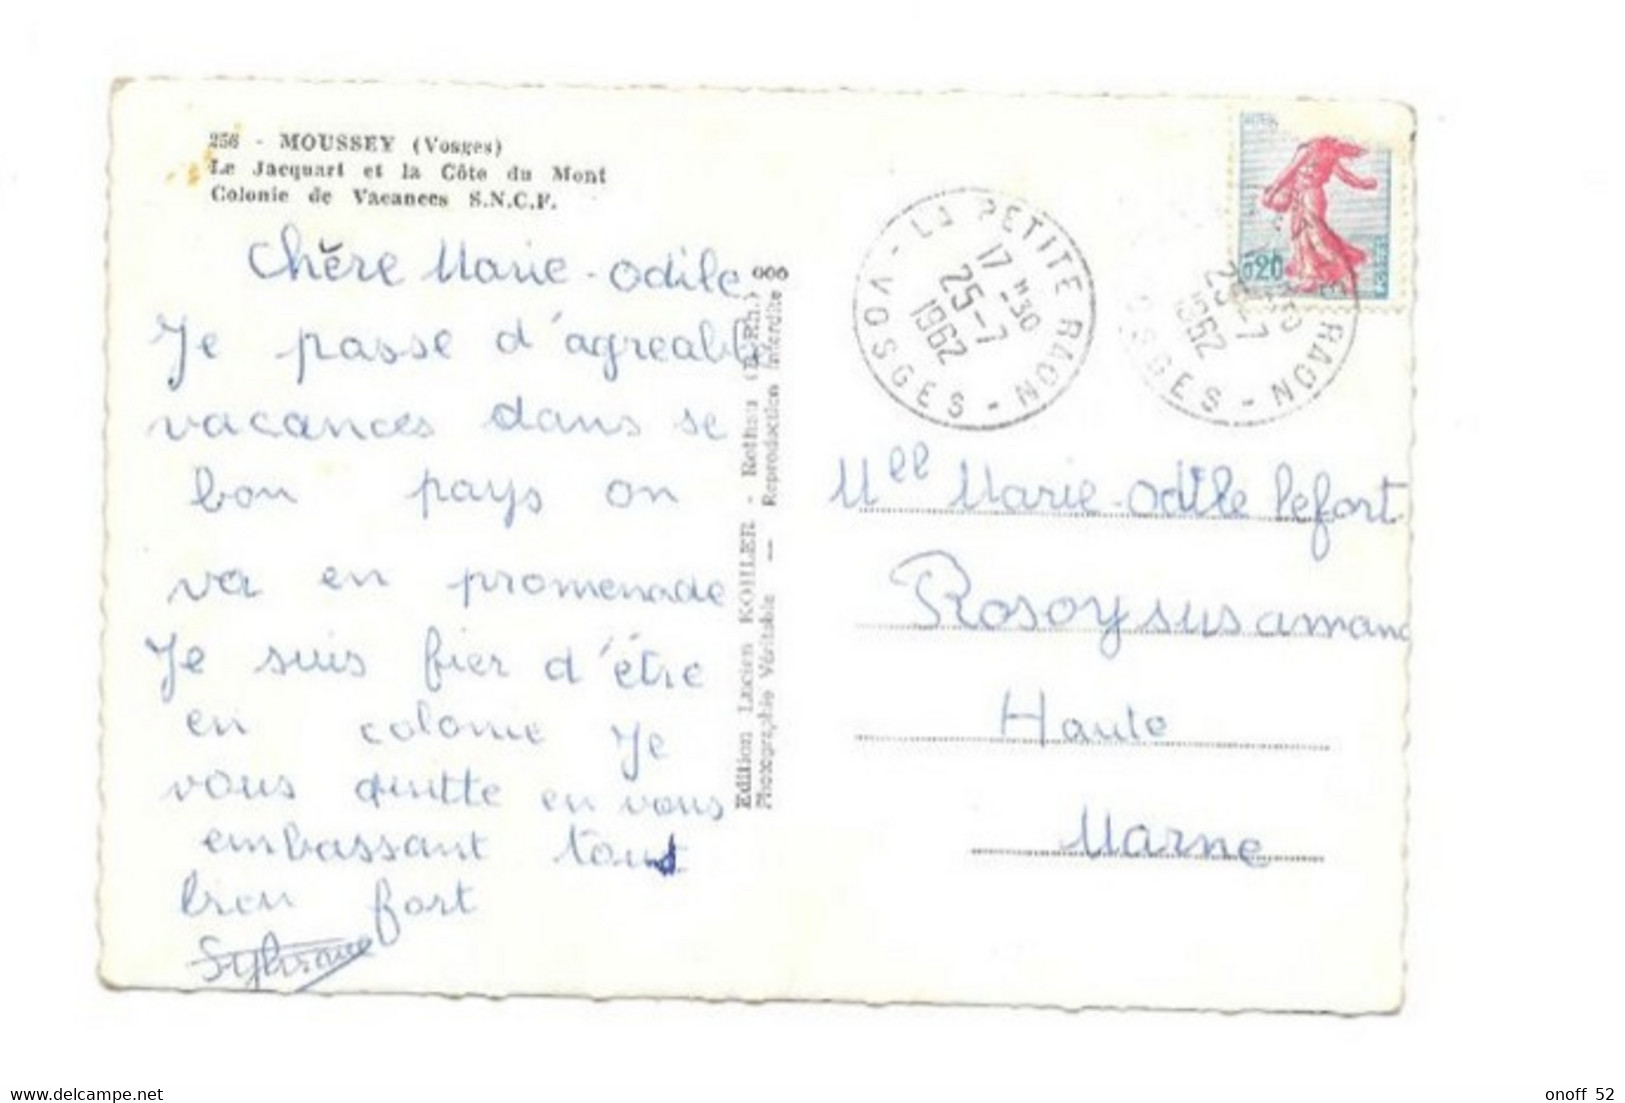 256 - MOUSSEY (Vosges)
Le Jacquart et la Côte du Mont
Colonie de Vacances S.N.C.F.
Chère Marie-Odile
Je passe d'agreable
vacances dans se
bon pays on
va en promenade
Je suis fier d'être
en colonie Je
vous quitte en vous
embassant tout
bien fort
Sylviane
Edition Lucien KOHLER - Rothau (B.-Rh.)
Photographie Véritable — Reproduction Interdite
LA PETITE RAON - VOSGES
17 H 30
25-7
1962
RAON - VOSGES
25-7
1962
0,20
POSTES
Mell Marie-Odile Lefort
Rosoy sus amanc
Haute
Marne
www.delcampe.net
onoff 52